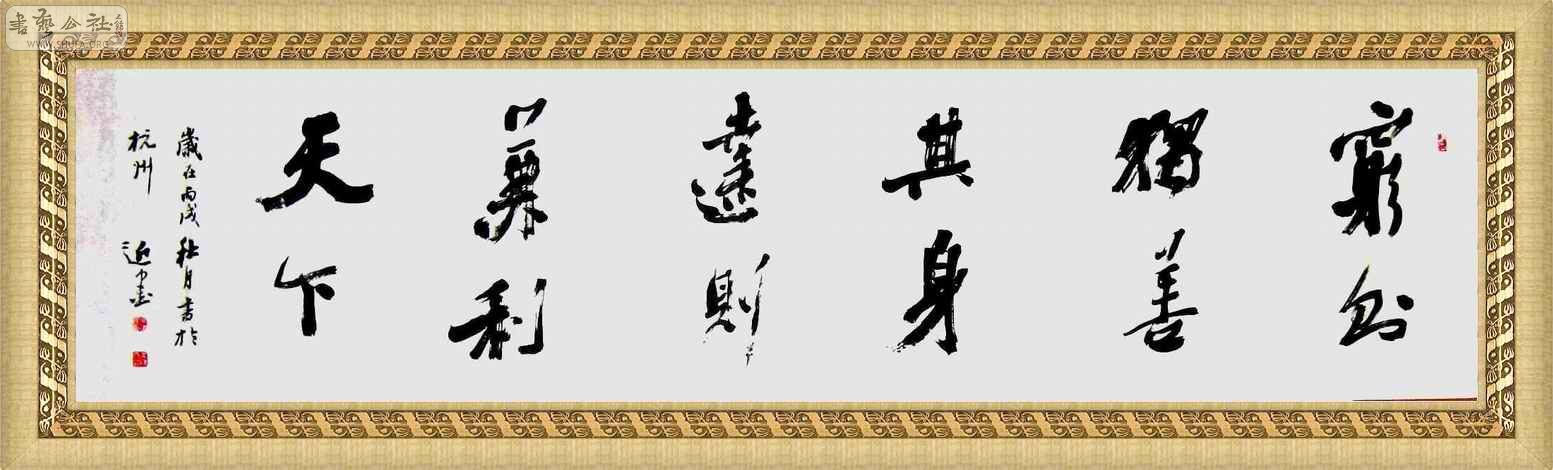 窮則
獨善
其身
達則
兼利
天下
歲在丙戌秋月書於
杭州
書藝公社
WWW.SHUFA.ORG